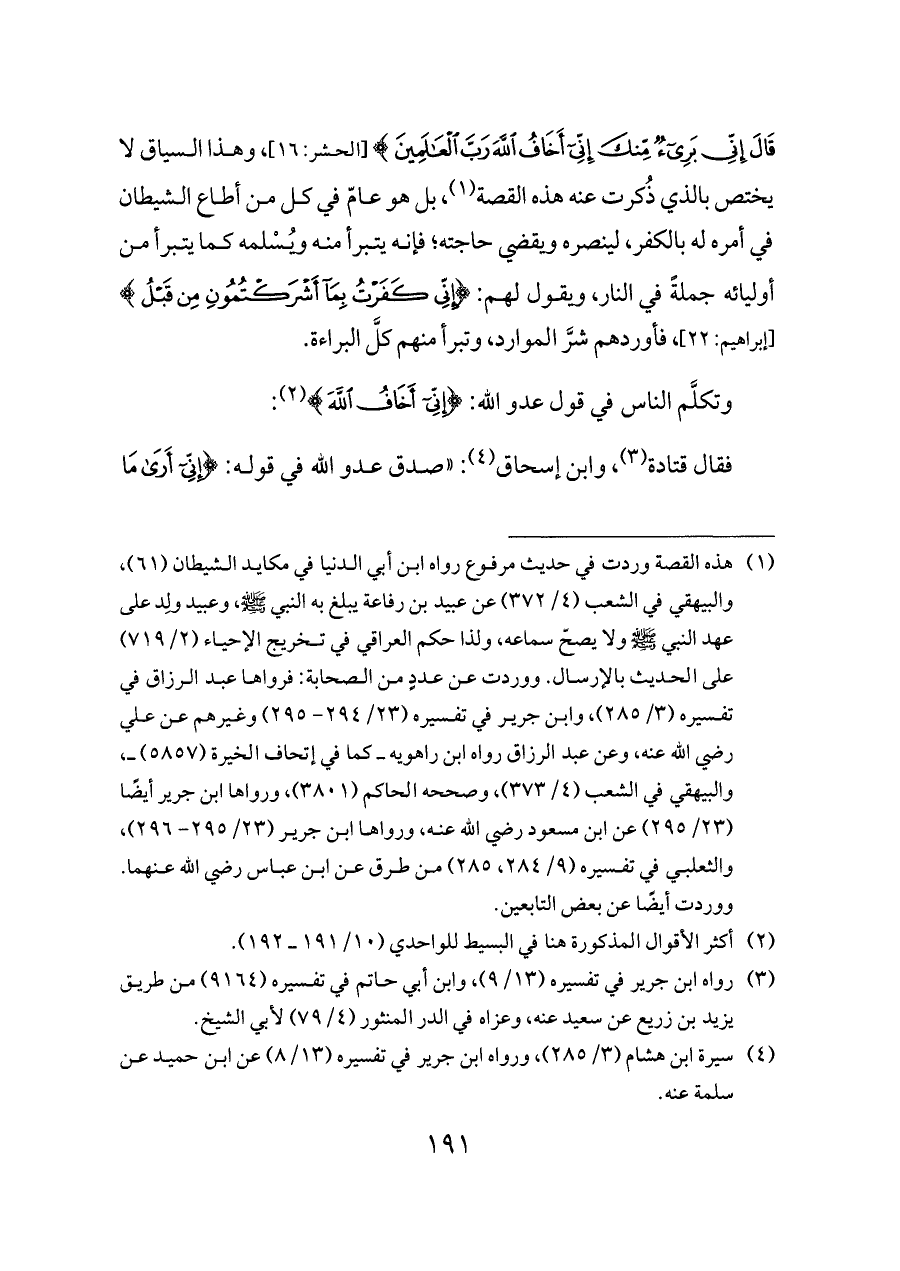 قَالَ إِنِّي بَرِيءٌ مِّنكَ إِنِّي أَخَافُ اللَّهَ رَبَّ الْعَالَمِينَ ﴾ [الحشر: ١٦]، وهذا السياق لا
يختص بالذي ذُكرت عنه هذه القصة(١)، بل هو عامّ في كل من أطاع الشيطان
في أمره له بالكفر، لينصره ويقضي حاجته؛ فإنه يتبرأ منه ويُسْلمه كما يتبرأ من
أوليائه جملةً في النار، ويقول لهم: ﴿إِنِّي كَفَرْتُ بِمَا أَشْرَكْتُمُونِ مِن قَبْلُ ﴾
[إبراهيم: ٢٢]، فأوردهم شرَّ الموارد، وتبرأ منهم كلَّ البراءة.
وتكلَّم الناس في قول عدو الله: ﴿إِنِّي أَخَافُ اللَّهَ﴾(٢):
فقال قتادة(٣)، وابن إسحاق(٤): «صدق عدو الله في قوله: ﴿إِنِّي أَرَىٰ مَا
(١) هذه القصة وردت في حديث مرفوع رواه ابن أبي الدنيا في مكايد الشيطان (٦١)،
والبيهقي في الشعب (٤/ ٣٧٢) عن عبيد بن رفاعة يبلغ به النبي ﷺ، وعبيد ولِد على
عهد النبي ﷺ ولا يصحّ سماعه، ولذا حكم العراقي في تخريج الإحياء (٢/ ٧١٩)
على الحديث بالإرسال. ووردت عن عددٍ من الصحابة: فرواها عبد الرزاق في
تفسيره (٣/ ٢٨٥)، وابن جرير في تفسيره (٢٣/ ٢٩٤- ٢٩٥) وغيرهم عن علي
رضي الله عنه، وعن عبد الرزاق رواه ابن راهويه ـ كما في إتحاف الخيرة (٥٨٥٧) ـ،
والبيهقي في الشعب (٤/ ٣٧٣)، وصححه الحاكم (٣٨٠١)، ورواها ابن جرير أيضًا
(٢٣/ ٢٩٥) عن ابن مسعود رضي الله عنه، ورواها ابن جرير (٢٣/ ٢٩٥- ٢٩٦)،
والثعلبي في تفسيره (٩/ ٢٨٤، ٢٨٥) من طرق عن ابن عباس رضي الله عنهما.
ووردت أيضًا عن بعض التابعين.
(٢) أكثر الأقوال المذكورة هنا في البسيط للواحدي (١٠/ ١٩١ ـ ١٩٢).
(٣) رواه ابن جرير في تفسيره (١٣/ ٩)، وابن أبي حاتم في تفسيره (٩١٦٤) من طريق
يزيد بن زريع عن سعيد عنه، وعزاه في الدر المنثور (٤/ ٧٩) لأبي الشيخ.
(٤) سيرة ابن هشام (٣/ ٢٨٥)، ورواه ابن جرير في تفسيره (١٣/ ٨) عن ابن حميد عن
سلمة عنه.
١٩١